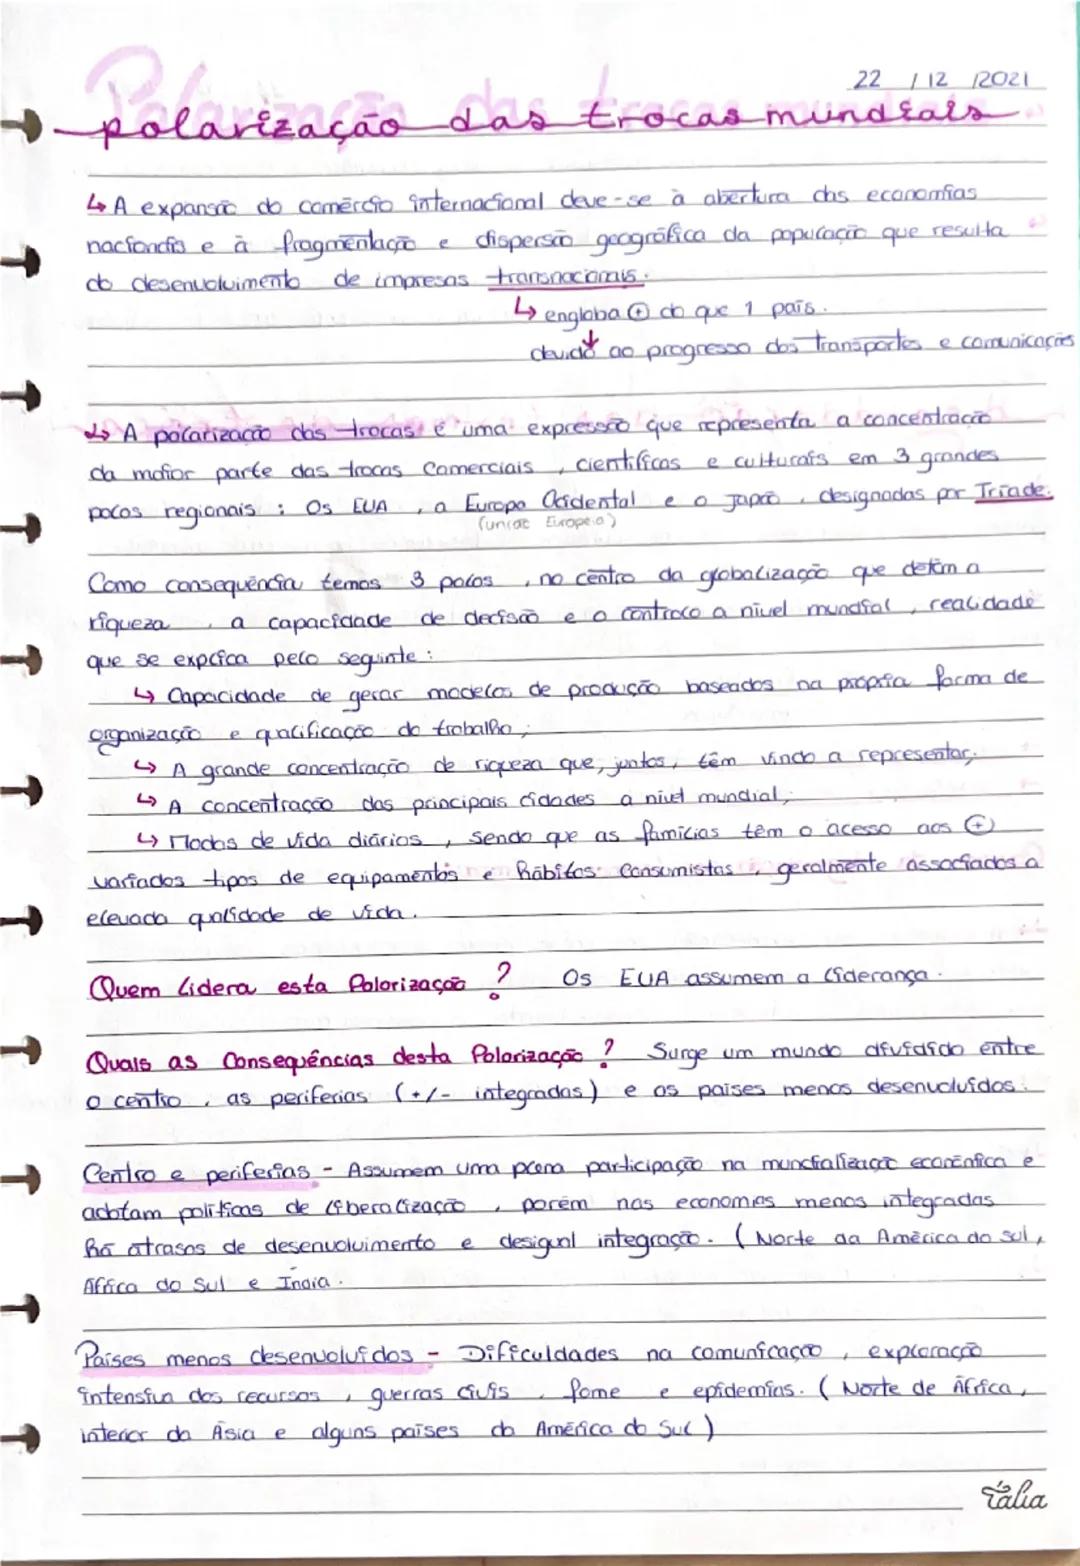 22 / 12 /2021
Polarização das trocas mundiais
polarização das trocas mundiais
↳ A expansão do comércio internacional deve-se à abertura das economias
nacionais e à fragmentação e dispersão geográfica da população que resulta
do desenvolvimento de impresas transnacionais.
↳ engloba ⊕ do que 1 país.
↓
devido ao progresso dos transportes e comunicações
↳ A polarização das trocas é uma expressão que representa a concentração
da maior parte das trocas Comerciais, científicas e culturais em 3 grandes
polos regionais: Os EUA, a Europa Ocidental e o Japão, designadas por Tríade.
(união Europeia)
Como consequência temos 3 polos, no centro da globalização que detêm a
riqueza, a capacidade de decisão e o controlo a nível mundial, realidade
que se explica pelo seguinte:
↳ Capacidade de gerar modelos de produção baseados na própria forma de
organização e qualificação do trabalho;
↳ A grande concentração de riqueza que, juntos, têm vindo a representar;
↳ A concentração das principais cidades a nível mundial;
↳ Modos de vida diários, sendo que as famílias têm o acesso aos ⊕
variados tipos de equipamentos e hábitos consumistas, geralmente associados a
elevada qualidade de vida.
Quem Lidera esta Polarização? Os EUA assumem a liderança.
Quais as Consequências desta Polarização? Surge um mundo dividido entre
o centro, as periferias (+/- integradas) e os países menos desenvolvidos.
Centro e periferias - Assumem uma plena participação na mundialização económica e
adotam políticas de liberalização, porém nas economias menos integradas
há atrasos de desenvolvimento e desigual integração. (Norte da América do Sul,
África do Sul e Índia.
Países menos desenvolvidos - Dificuldades na comunicação, exploração
intensiva dos recursos, guerras civis, fome e epidemias. (Norte de África,
interior da Ásia e alguns países do América do Sul)
Tália